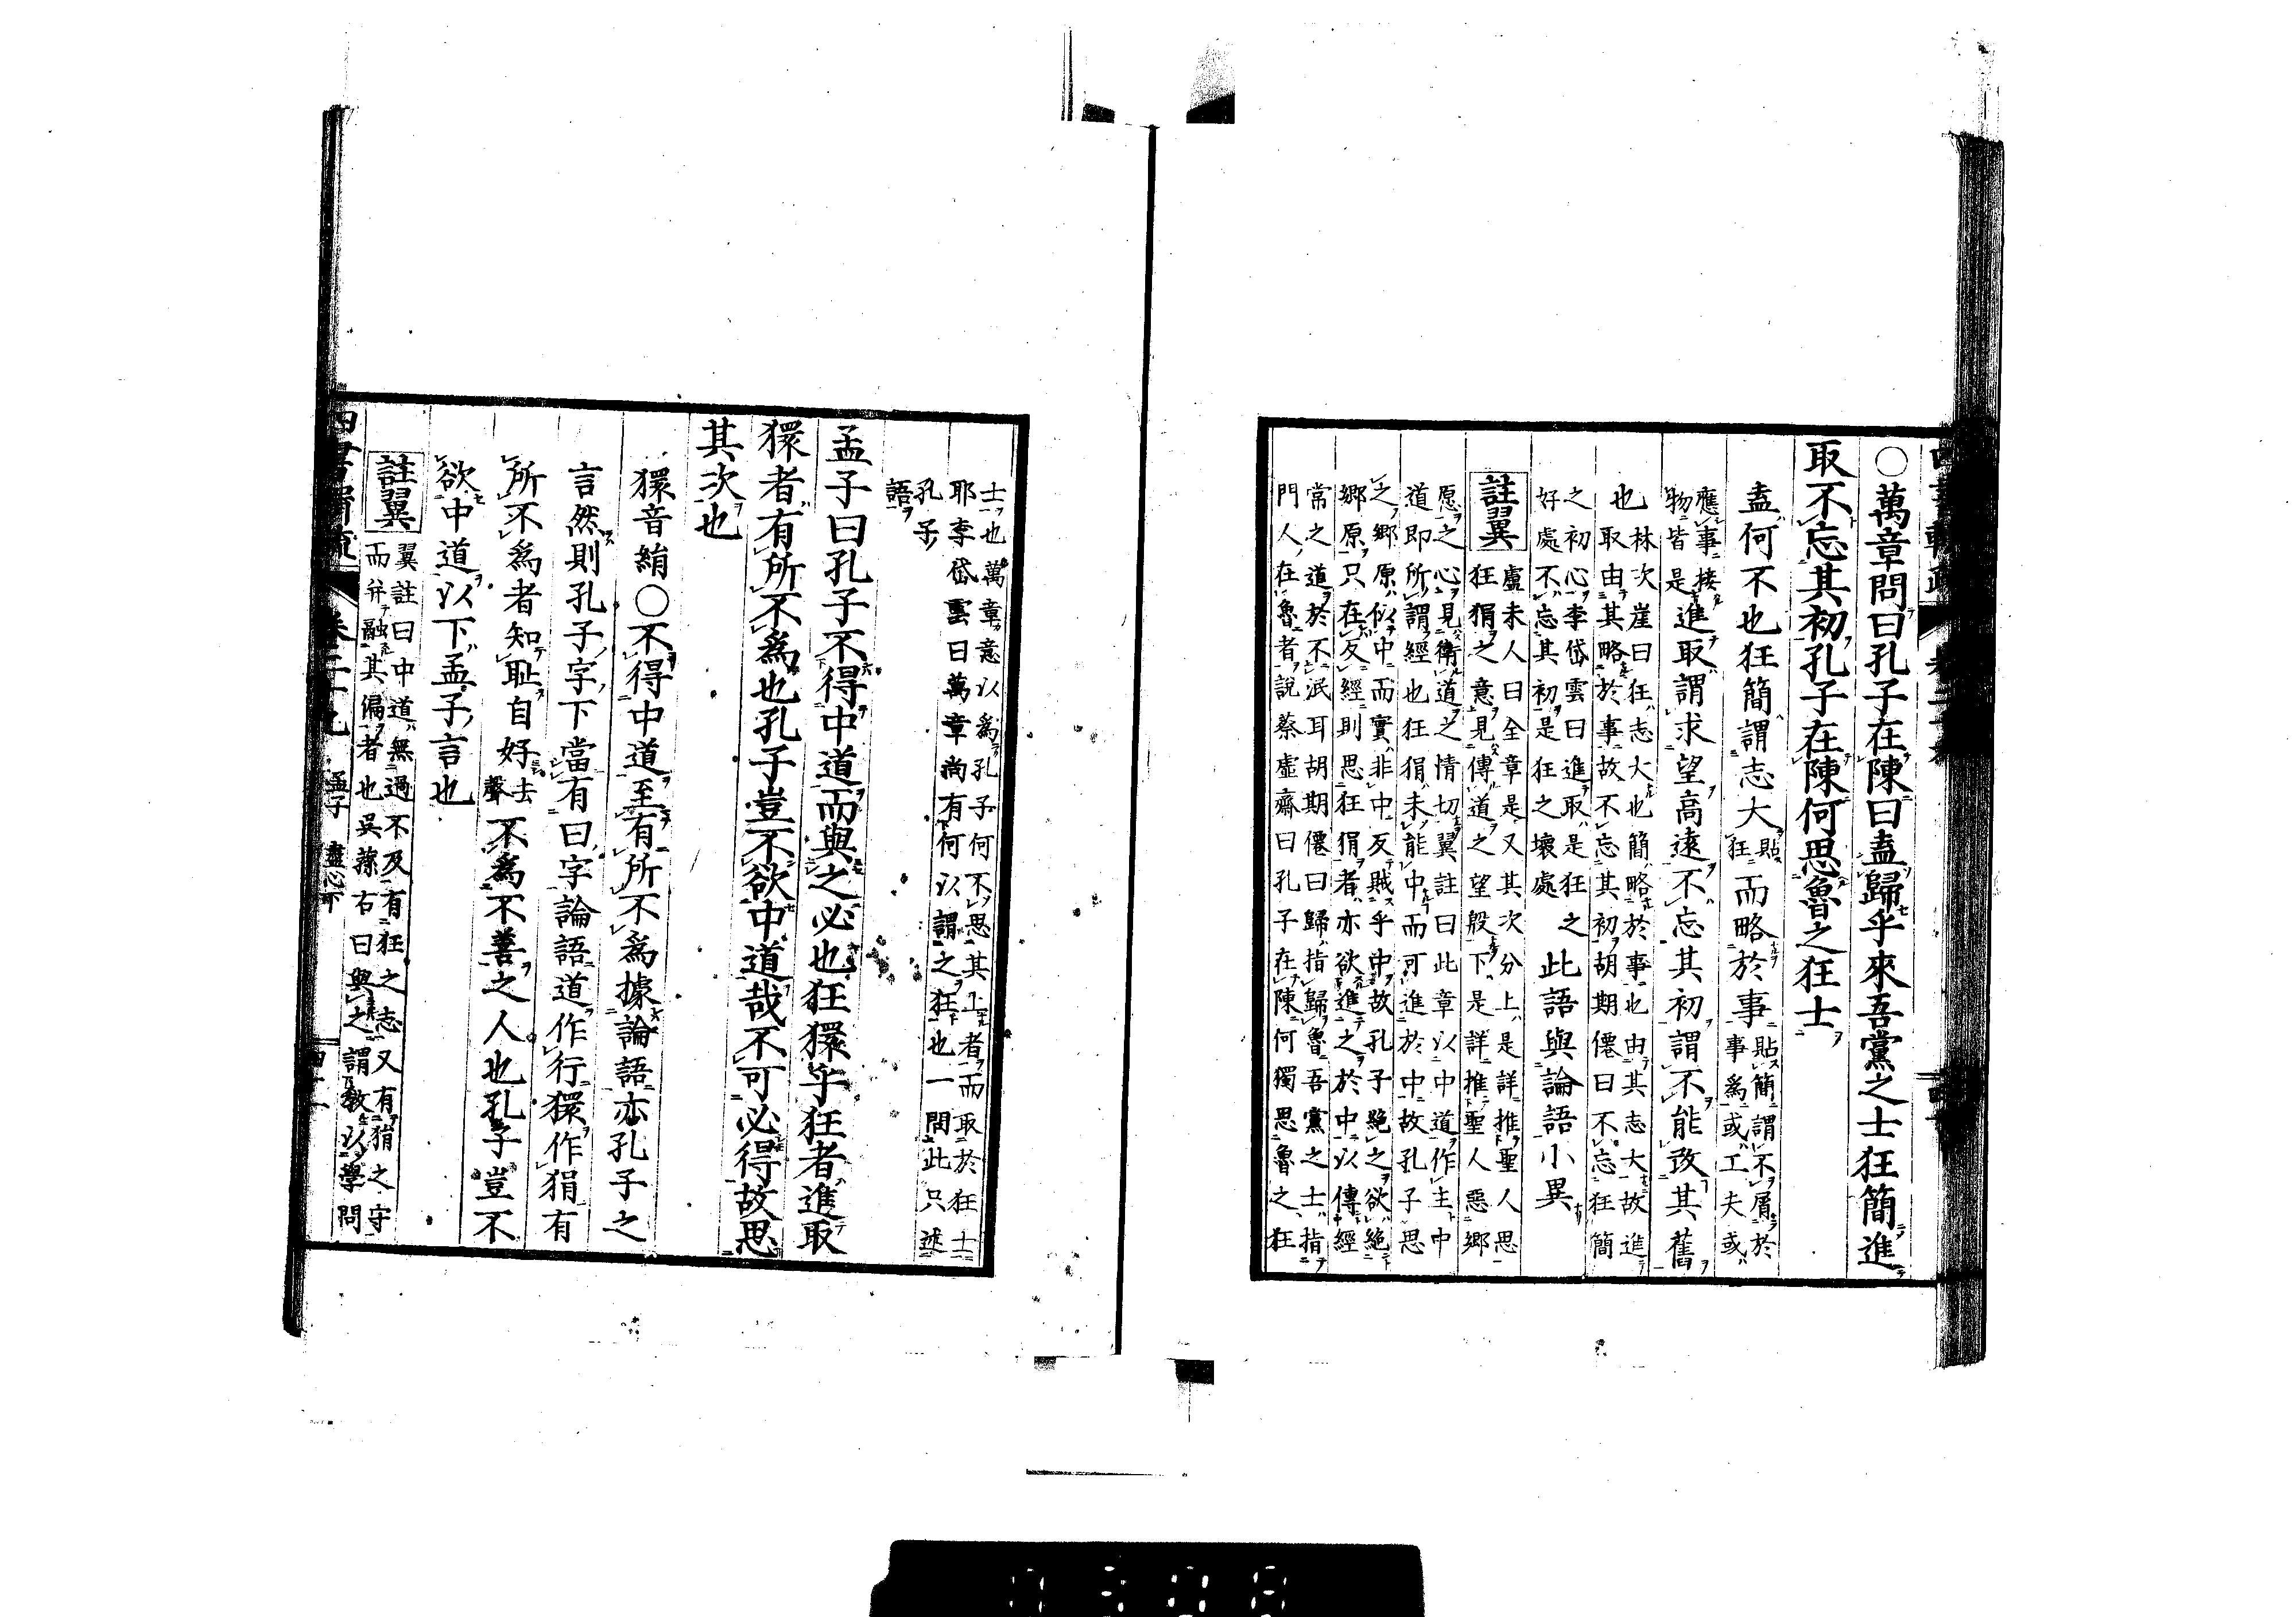 〇萬章問曰孔子在陳曰盍歸乎來吾黨之士狂簡進
取不忘其初孔子在陳何思魯之狂士
盍何不也狂簡謂志大貼狂而略於事貼簡謂不屑於事為或工夫或
應事接物皆是進取謂求望高遠不忘其初謂不能改其舊
也林次崖曰狂志大也簡略於事也由其志大故進
取由其略於事故不忘其初胡期僊曰不忘狂簡
之初心李岱雲曰進取是狂之
好處不忘其初是狂之壞處此語與論語小異
註翼
盧未人曰全章是又其次分上是詳推聖人思
狂狷之意見傳道之望殷下是詳推聖人惡鄉
愿之心見衛道之情切翼註曰此章以中道作主中
道即所謂經也狂狷未能中而可進於中故孔子思
之鄉原似中而實非中反賊乎中故孔子絕之欲絕
鄉原只在反經則思狂狷者亦欲進之於中以傳經
常之道於不泯耳胡期僊曰歸指歸魯吾黨之士指
門人在魯者說蔡虛齋曰孔子在陳何獨思魯之狂
士也萬章意以為孔子何不思其上者而取於狂士
耶李岱雲曰萬章尚有何以謂之狂也一問此只述
孔子
語
孟子曰孔子不得中道而與之必也狂獧乎狂者進取
獧者有所不為也孔子豈不欲中道哉不可必得故思
其次也
獧音絹〇不得中道至有所不為據論語亦孔子之
言然則孔子字下當有曰字論語道作行獧作狷有
所不為者知恥自好去聲不為不善之人也孔子豈不
欲中道以下孟子言也
註翼
翼註曰中道無過不及有狂之志又有狷之守
而弁融其偏者也吳蓀右曰與之謂教以學問
孟子 盡心下